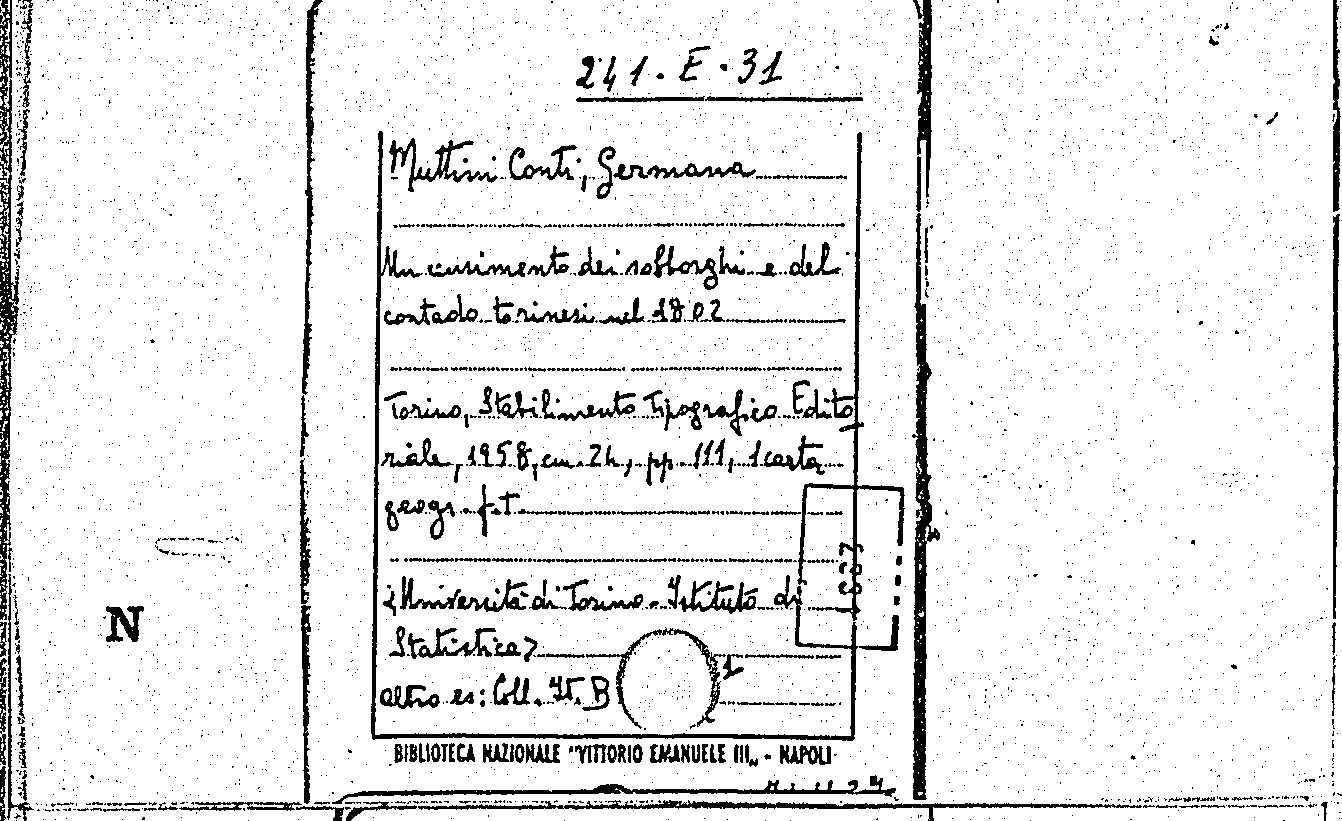 241. E. 31
Muttini Conti, Germana
Un censimento dei sobborghi e del
contado torinesi nel 1802
Torino, Stabilimento Tipografico Edito
riale, 1958, cm. 24, pp. 111, 1 carta
geogr. f.t.
<Università di Torino - Istituto di
Statistica>
altro es: Coll. It. B
N
BIBLIOTECA NAZIONALE "VITTORIO EMANUELE III„ - NAPOLI